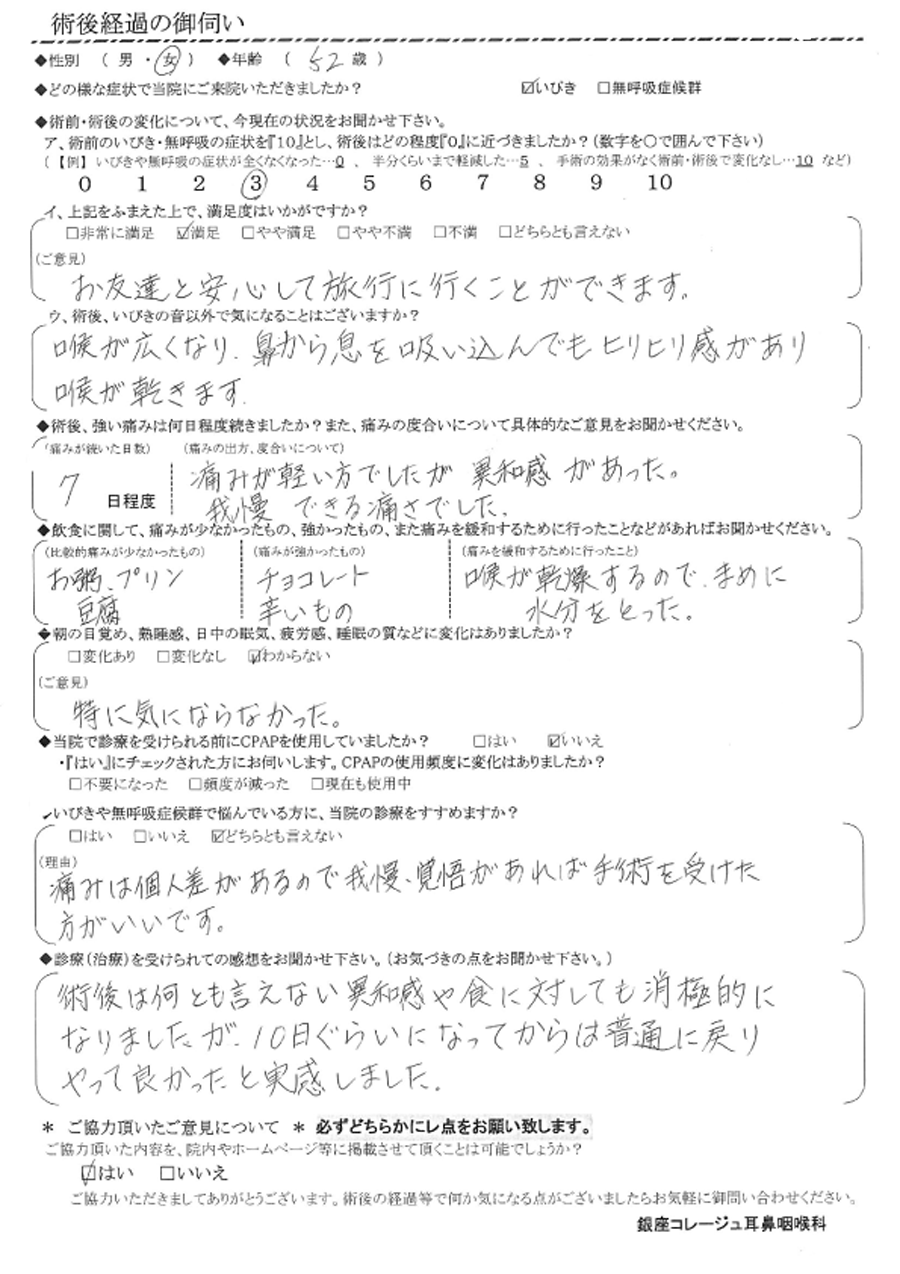 術後経過の御伺い
◆性別 （ 男 ・ 女 ） ◆年齢 （ 52 歳 ）
◆どの様な症状で当院にご来院いただきましたか？ ☑いびき □無呼吸症候群
◆術前・術後の変化について、今現在の状況をお聞かせ下さい。
ア、術前のいびき・無呼吸の症状を『10』とし、術後はどの程度『0』に近づきましたか？（数字を〇で囲んで下さい）
（【例】いびきや無呼吸の症状が全くなくなった…0 、 半分くらいまで軽減した…5 、 手術の効果がなく術前・術後で変化なし…10 など）
0 1 2 3 4 5 6 7 8 9 10
イ、上記をふまえた上で、満足度はいかがですか？
□非常に満足 ☑満足 □やや満足 □やや不満 □不満 □どちらとも言えない
（ご意見）
お友達と安心して旅行に行くことができます。
ウ、術後、いびきの音以外で気になることはございますか？
喉が広くなり、鼻から息を吸い込んでもヒリヒリ感があり
喉が乾きます。
◆術後、強い痛みは何日程度続きましたか？また、痛みの度合いについて具体的なご意見をお聞かせください。
（痛みが続いた日数） （痛みの出方、度合いについて）
痛みが軽い方でしたが 異和感 があった。
7 日程度
我慢 できる痛さでした。
◆飲食に関して、痛みが少なかったもの、強かったもの、また痛みを緩和するために行ったことなどがあればお聞かせください。
（比較的痛みが少なかったもの） （痛みが強かったもの） （痛みを緩和するために行ったこと）
お粥、プリン チョコレート 喉が乾燥するので、まめに
豆腐 辛いもの 水分をとった。
◆朝の目覚め、熟睡感、日中の眠気、疲労感、睡眠の質などに変化はありましたか？
□変化あり □変化なし ☑わからない
（ご意見）
特に気にならなかった。
◆当院で診療を受けられる前にCPAPを使用していましたか？ □はい ☑いいえ
・『はい』にチェックされた方にお伺いします。CPAPの使用頻度に変化はありましたか？
□不要になった □頻度が減った □現在も使用中
いびきや無呼吸症候群で悩んでいる方に、当院の診療をすすめますか？
□はい □いいえ ☑どちらとも言えない
（理由）
痛みは個人差があるので我慢、覚悟があれば手術を受けた
方がいいです。
◆診療（治療）を受けられての感想をお聞かせ下さい。（お気づきの点をお聞かせ下さい。）
術後は何とも言えない異和感や食に対しても消極的に
なりましたが、10日ぐらいになってからは普通に戻り
やって良かったと実感しました。
＊ ご協力頂いたご意見について ＊ 必ずどちらかにレ点をお願い致します。
ご協力頂いた内容を、院内やホームページ等に掲載させて頂くことは可能でしょうか？
☑はい □いいえ
ご協力いただきましてありがとうございます。術後の経過等で何か気になる点がございましたらお気軽に御問い合わせください。
銀座コレージュ耳鼻咽喉科